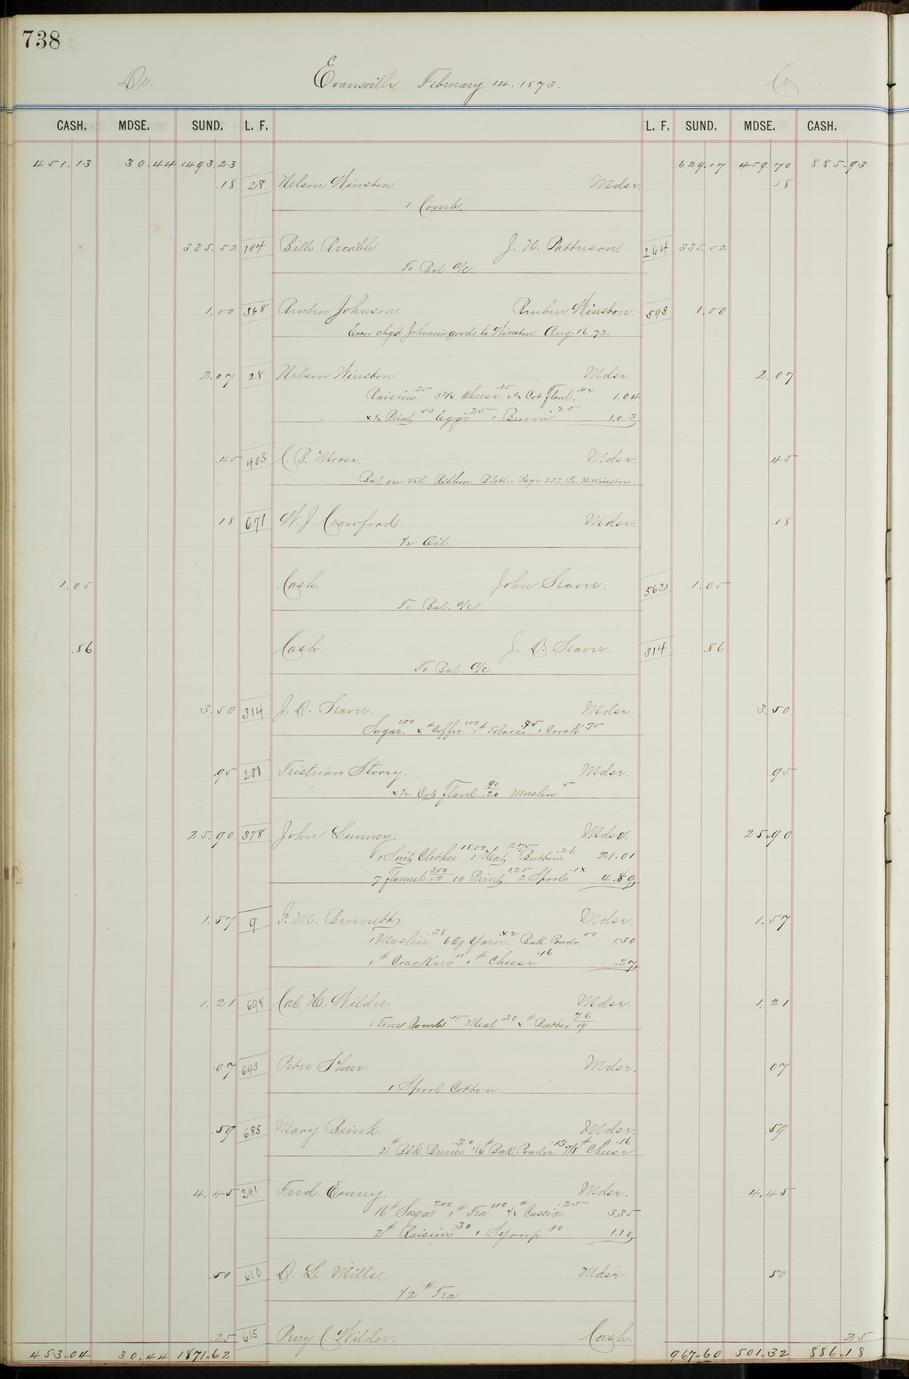 738
Dr. Evansville, February 14, 1873. Cr.
CASH. MDSE. SUND. L. F. L. F. SUND. MDSE. CASH.
451.13 30.44 1493.23 629.17 459.70 885.93
.18 28 Nelson Winston Mdse. .18
1 Comb.
335.52 104 Bills Recable J. H. Pattinson 264 335.52
To Bal. a/c
1.00 348 Reubin Johnson. Reubin Winston. 593 1.00
Error chg'd Johnson goods to Winston Aug. 16. 72.
2.07 28 Nelson Winston Mdse. 2.07
Raisins .25 Cheese .35 Cot Flanl. 1.04
Print Eggs .25 1 Broom 1.03
.45 403 C. B. Moore. Mdse. .45
Bal on Vel. Ribbon Blotter Page 355 Pr. N. Winston.
.18 671 W. J. Crawford. Mdse. .18
1/2 Oil.
1.05 Cash. John Seaver. 562 1.05
To Bal. a/c
.86 Cash J. D. Seaver 314 .86
To Bal. a/c
3.50 314 J. D. Seaver. Mdse. 3.50
Sugar 1.00 Coffee 1.00 1# Tobacco
.95 201 Tristrian Storry. Mdse. 95
Cot Flanl Muslin 5
25.90 378 John Mdse. 25.90
1 Suit Clothes 18.00 1 Hat 2.75 Buttons .26 21.01
7 Flannel 10 Print 1.25 2 Spools 4.89
1.57 9 J. M. Bennett Mdse. 1.57
1 Muslin Yarn Bak. Powdr. 1.30
1# Crackers 11 1# Cheese .16 .27
1.21 698 Cal H. Wilder. Mdse. 1.21
1 Fine Comb .15 Meal .30 Butter 76/19
.07 693 Peter Mdse. 07
1 Spool Cotton
.59 685 Mary Brink Mdse. 59
2# Blk. Berries .30 Bak. Powder Cheese .16
4.45 241 Fred. Emery. Mdse. 4.45
16# Sugar 2.00 1# Tea 1.10 Cassia .25 3.35
2# Raisins .30 1 Syrup 1.10
.50 610 D. L. Mills. Mdse 50
1/2 # Tea
.25 615 Perry C Wilder. Cash. 25
453.04 30.44 1871.62 967.60 501.32 886.18